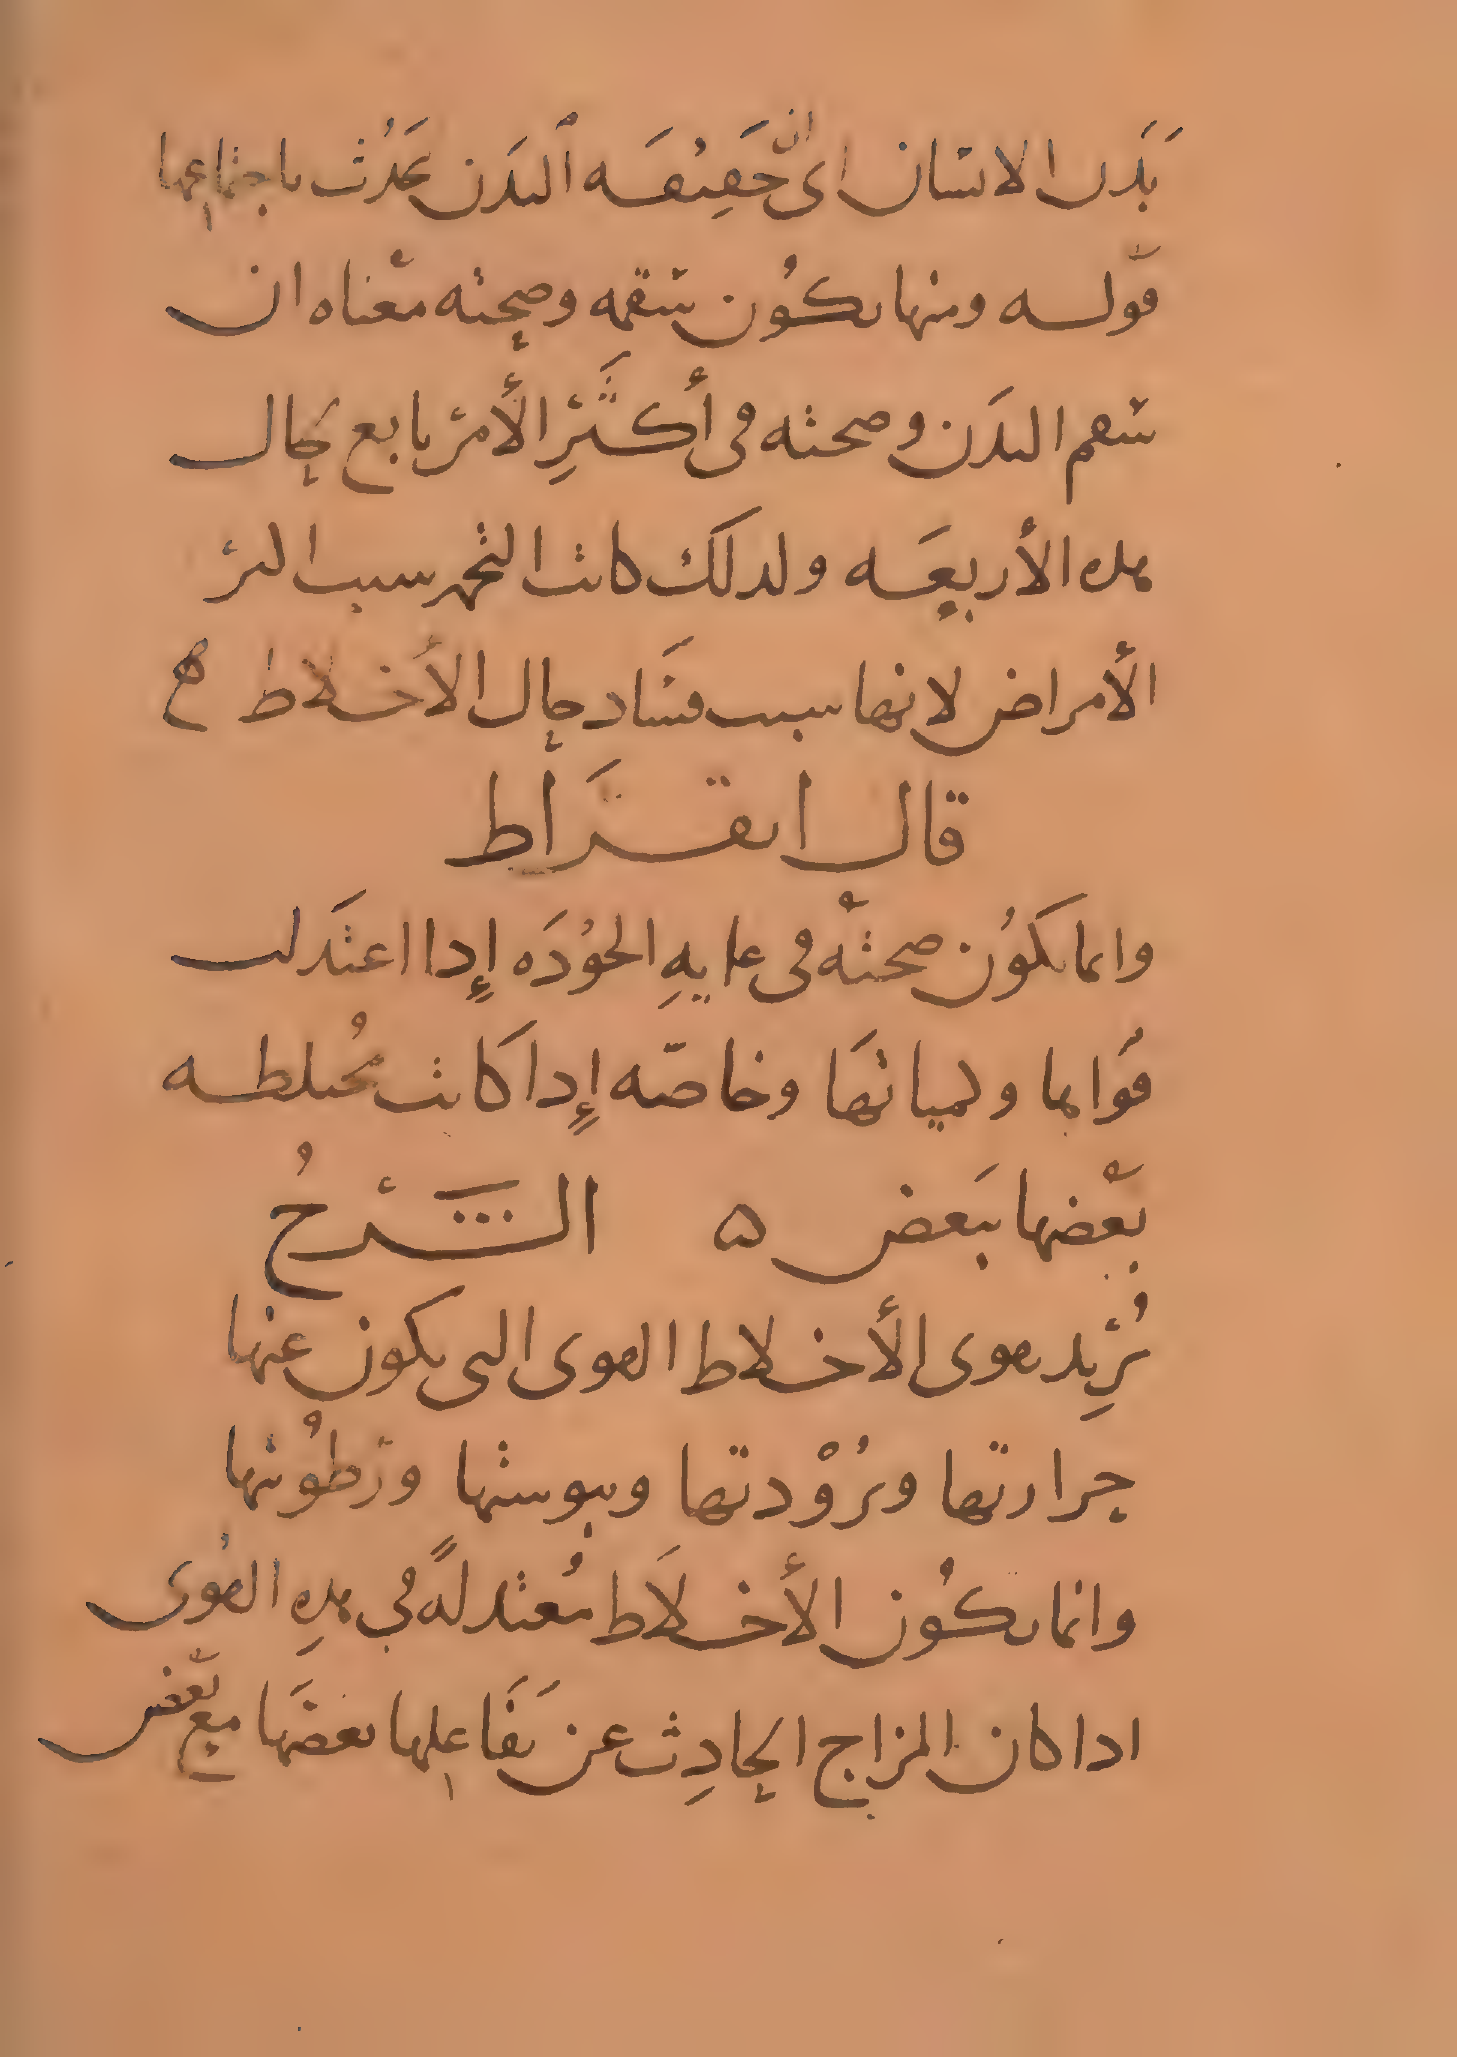 بَدَن الانسان اى ان حَقِيقَه البَدَن يحَدُث باجتماعها
قوله ومنها يكُون سَقمه وصحته معْناه ان
سقم البدَن وصحته فى أكثَرِ الأمرْ تابع لحال
هذه الأربعَه ولذلكَ كانت التخم سبب اكثر
الأمراض لانها سبب فسَاد حال الأخلاط ه
قال ابقراط
وانما يكوُن صحتْه فى غايهِ الجوُدَه إِذا اعتدَلت
قُوَاها وكمياتهَا وخاصّه إِذا كانت مُختلطه
بعْضها ببَعض ه الشرحُ
يُرِيد بقوى الأخلاط القوى التى يكون عنها
حرارتها وبرُوْدتها ويبوستها ورطوُبتها
وانما يكُون الأخلَاط مُعتدلهً فى هذهِ القوُى
اذا كان المزاج الحادِث عن تفَاعلها بعضهَا مع بعْض